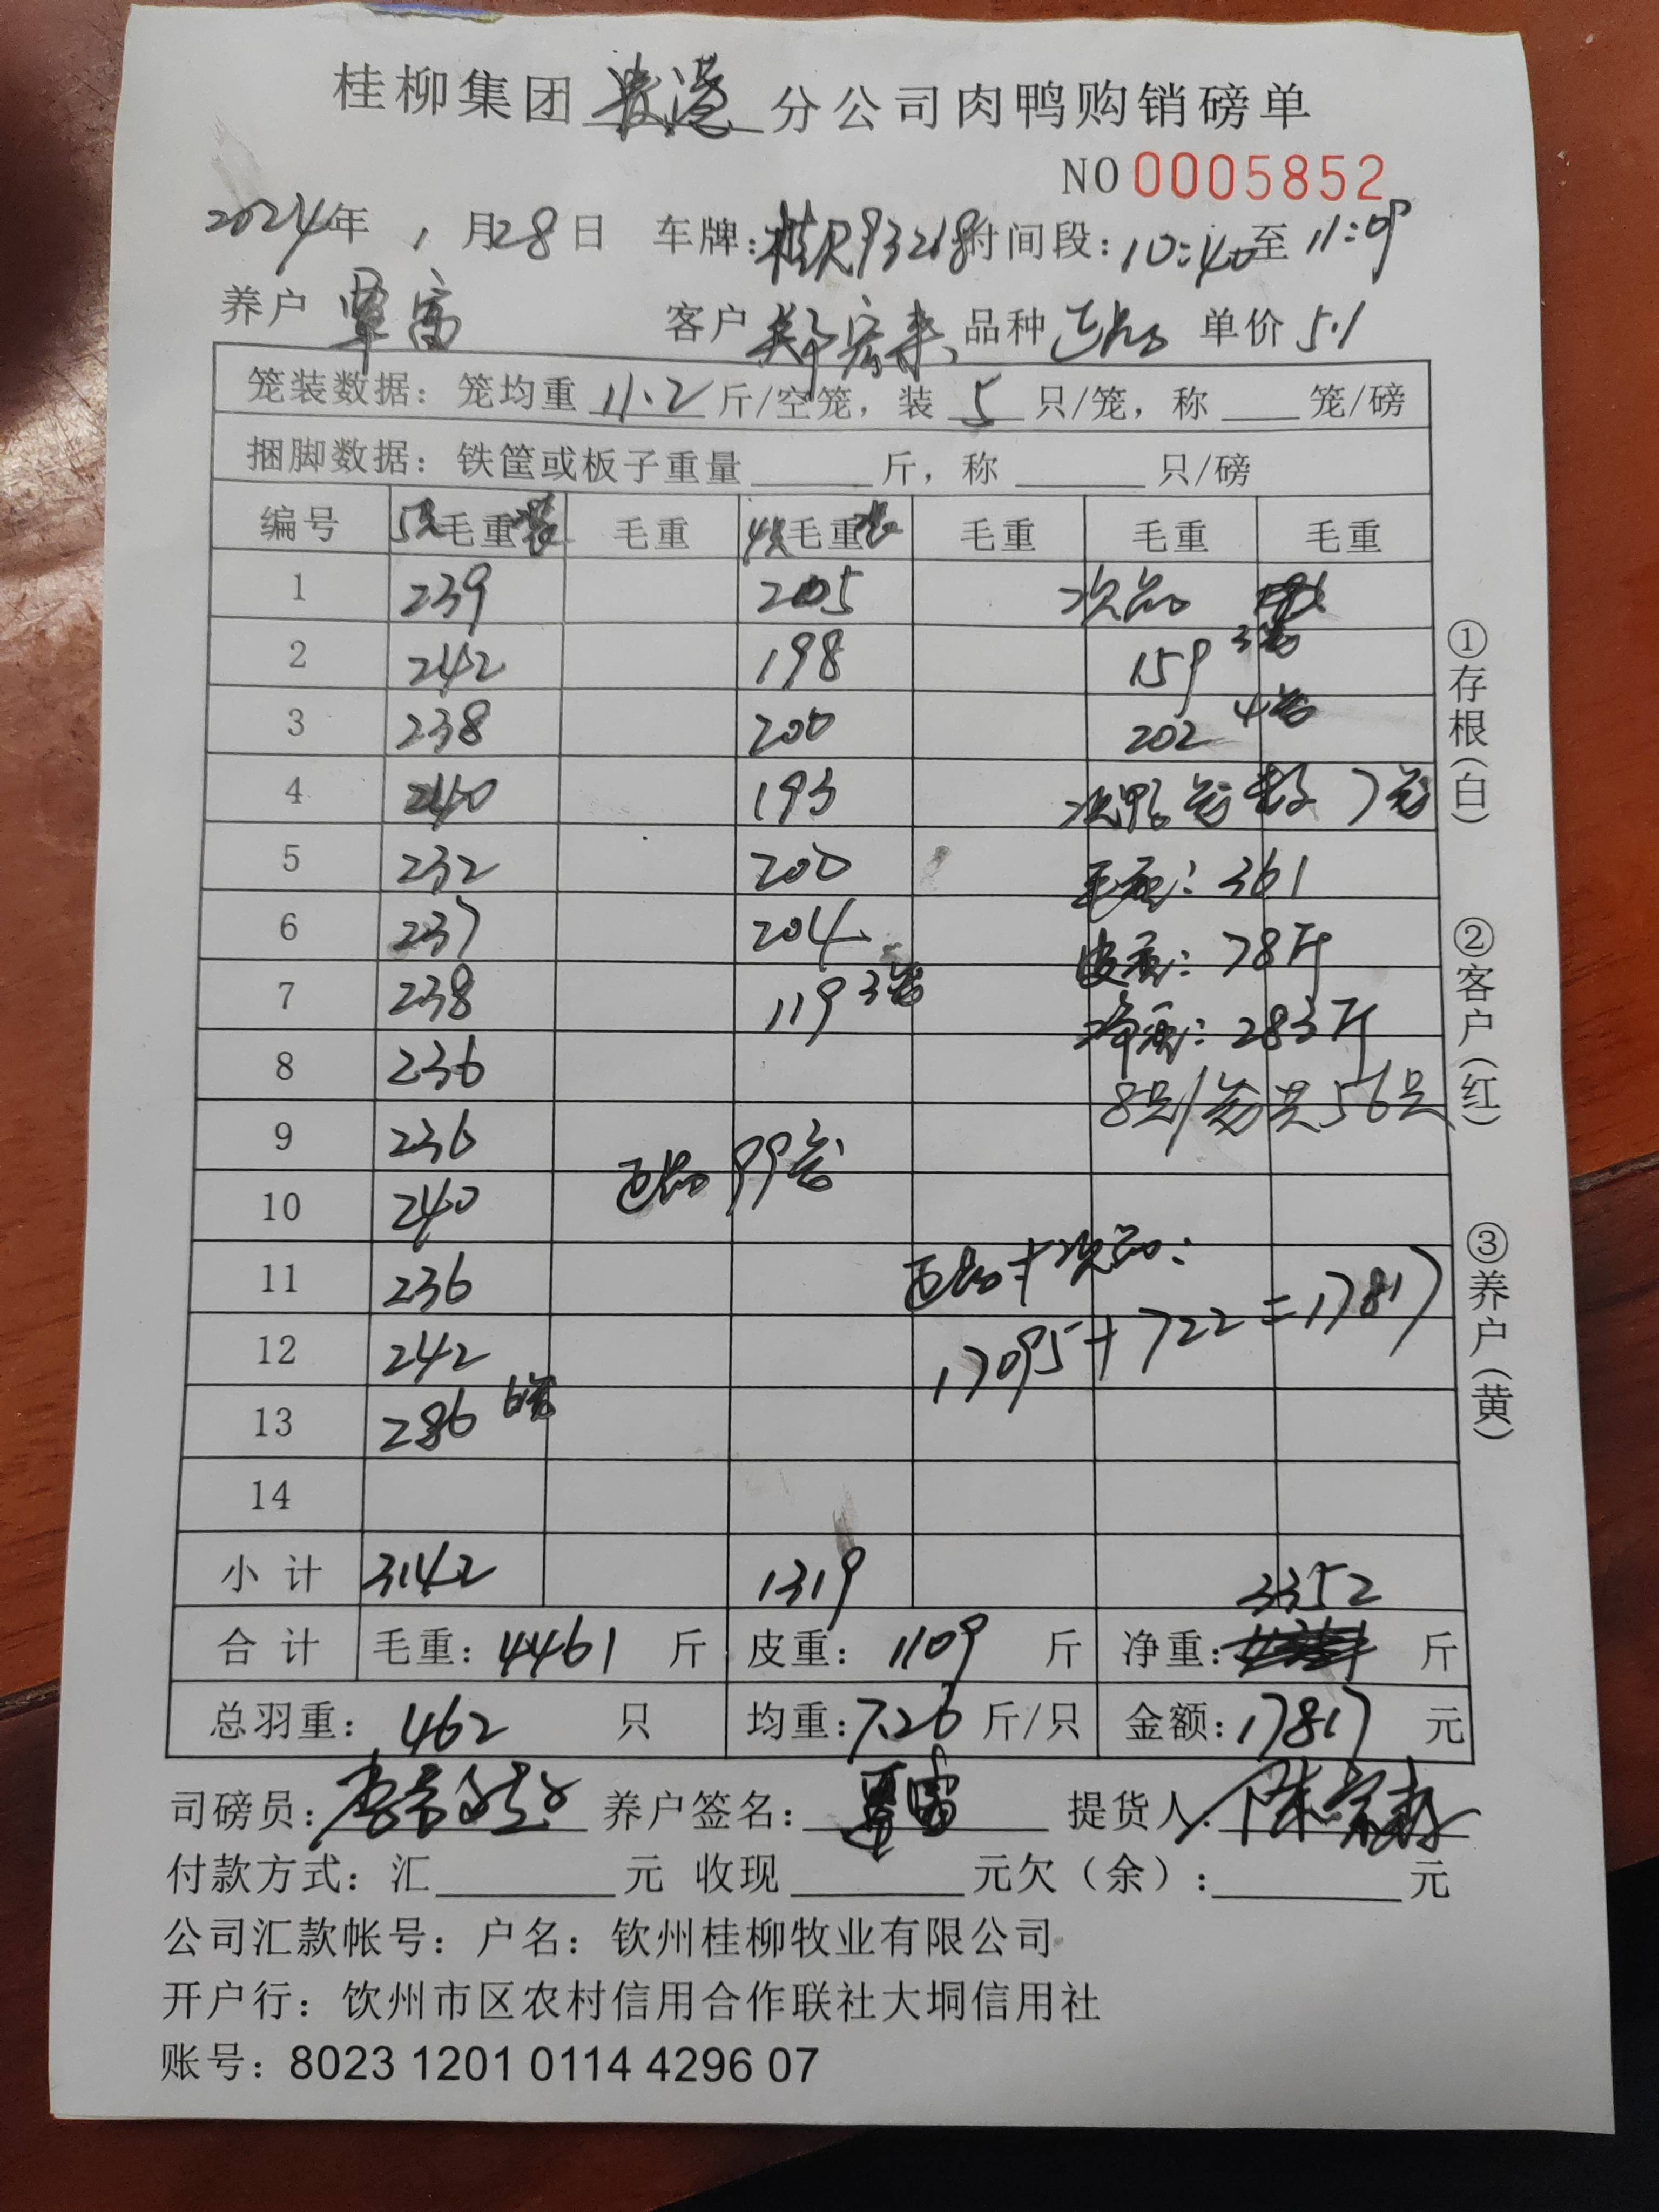 桂柳集团贵港分公司肉鸭购销磅单
NO 0005852
2024年 1月28日 车牌:桂R93218 时间段:10:40至11:09
养户 覃富 客户 郑宏来 品种 正品 单价 5.1
笼装数据：笼均重 11.2 斤/空笼，装 5 只/笼，称____笼/磅
捆脚数据：铁筐或板子重量____斤，称____只/磅
编号 5只毛重装 毛重 4只毛重装 毛重 毛重 毛重
1 239 205 次品
2 242 198 159 3笼
3 238 200 202 4笼
4 240 193 次鸭笼数 7笼
5 232 200 毛重：361
6 237 204 皮重：78斤
7 238 119 3笼 净重：283斤
8 236 8只/笼共56只
9 236 正品 99笼
10 240
11 236 正品+次品：
12 242 17095+722=17817
13 286 6笼
14
小计 3142 1319 3352
合计 毛重：4461 斤 皮重：1109 斤 净重： 斤
总羽重：462 只 均重：7.26 斤/只 金额：17817 元
司磅员： 养户签名：覃富 提货人：
付款方式：汇____元 收现____元欠（余）:____元
公司汇款帐号：户名：钦州桂柳牧业有限公司
开户行：饮州市区农村信用合作联社大垌信用社
账号：8023 1201 0114 4296 07
①存根（白）
②客户（红）
③养户（黄）